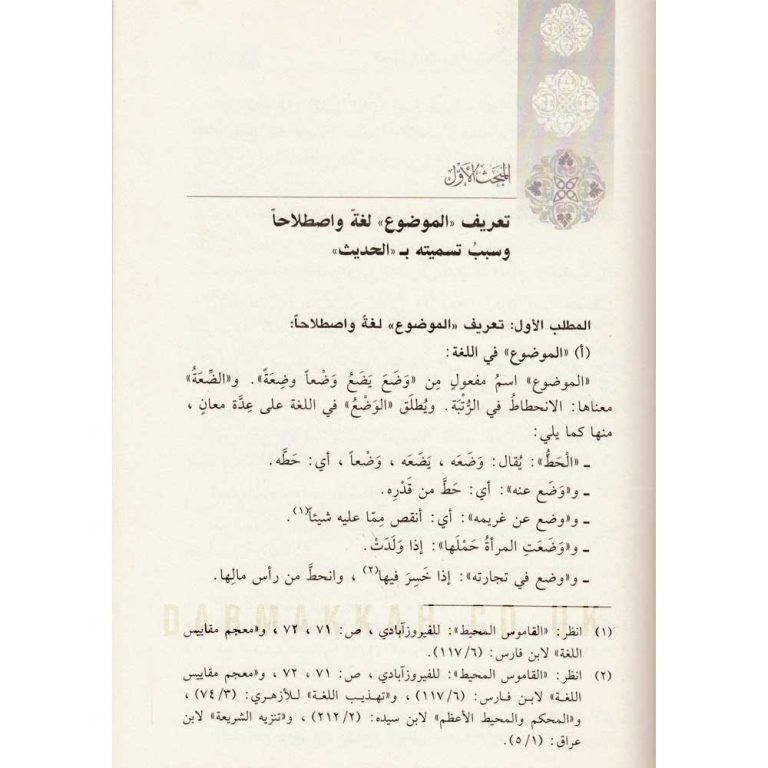 المبحث الأول
تعريف «الموضوع» لغةً واصطلاحاً
وسببُ تسميته بـ «الحديث»
المطلب الأول: تعريف «الموضوع» لغةً واصطلاحاً:
(أ) «الموضوع» في اللغة:
«الموضوع» اسمُ مفعولٍ مِن «وَضَعَ يَضَعُ وَضْعاً وضِعَةً». و«الضِّعَةُ»
معناها: الانحطاطُ في الرُّتْبَة. ويُطلَق «الوَضْعُ» في اللغة على عِدَّة معانٍ،
منها كما يلي:
ـ «الْحَطُّ»: يُقال: وَضَعَه، يَضَعَه، وَضْعاً، أي: حَطَّه.
ـ و«وَضَع عنه»: أي: حَطَّ من قَدْرِه.
ـ و«وضع عن غريمه»: أي: أنقص مِمّا عليه شيئاً(١).
ـ و«وَضَعَتِ المرأةُ حَمْلَها»: إذا وَلَدَتْ.
ـ و«وضع في تجارته»: إذا خَسِرَ فيها(٢)، وانحطَّ من رأس مالِها.
DARMAKKAH.CO.UK
(١) انظر: «القاموس المحيط»: للفيروزآبادي، ص: ٧١، ٧٢، و«معجم مقاييس
اللغة» لابن فارس: (٦/١١٧).
(٢) انظر: «القاموس المحيط»: للفيروزآبادي، ص: ٧١، ٧٢، و«معجم مقاييس
اللغة» لابن فارس: (٦/١١٧)، و«تهذيب اللغة» للأزهري: (٣/٧٤)،
و«المحكم والمحيط الأعظم» لابن سيده: (٢/٢١٢)، و«تنزيه الشريعة» لابن
عراق: (١/٥).